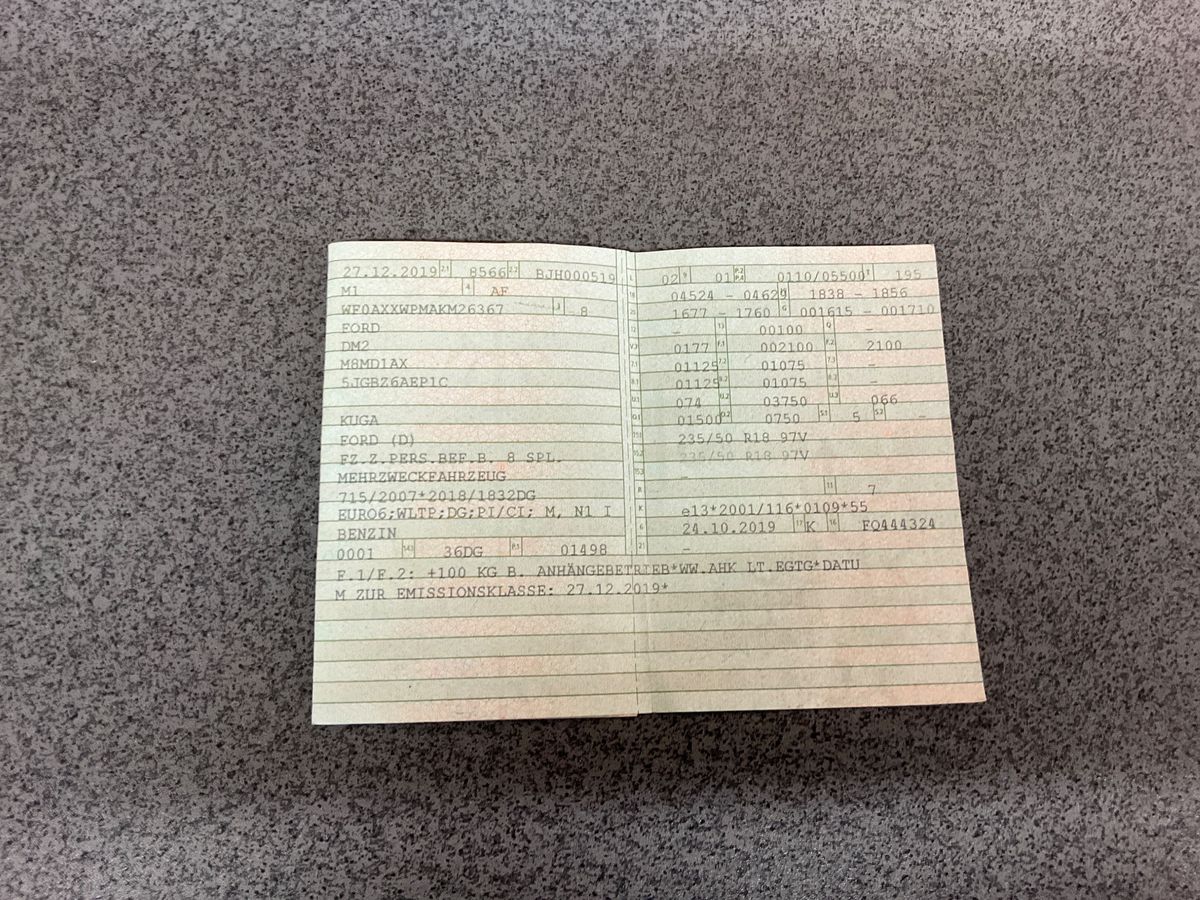 27.12.2019 2.1 8566 2.2 BJH000519
M1 4 AF
WF0AXXWPMAKM26367 3 - 8
FORD
DM2
M8MD1AX
5JGBZ6AEP1C
KUGA
FORD (D)
FZ.Z.PERS.BEF.B. 8 SPL.
MEHRZWECKFAHRZEUG
715/2007*2018/1832DG
EURO6;WLTP;DG;PI/CI; M, N1 I
BENZIN
0001 14.1 36DG P.1 01498
L 02 9 01 P.2 P.4 0110/05500 T 195
18 04524 - 0462 19 1838 - 1856
20 1677 - 1760 G 001615 - 001710
12 - 13 00100 Q -
V.7 0177 F.1 002100 F.2 2100
7.1 01125 7.2 01075 7.3 -
8.1 01125 8.2 01075 8.3 -
U.1 074 U.2 03750 U.3 066
O.1 01500 O.2 0750 S.1 5 S.2 -
15.1 235/50 R18 97V
15.2 235/50 R18 97V
15.3 -
R 11 7
K e13*2001/116*0109*55
6 24.10.2019 17 K 16 FQ444324
21 -
F.1/F.2: +100 KG B. ANHÄNGEBETRIEB*WW.AHK LT.EGTG*DATU
M ZUR EMISSIONSKLASSE: 27.12.2019*